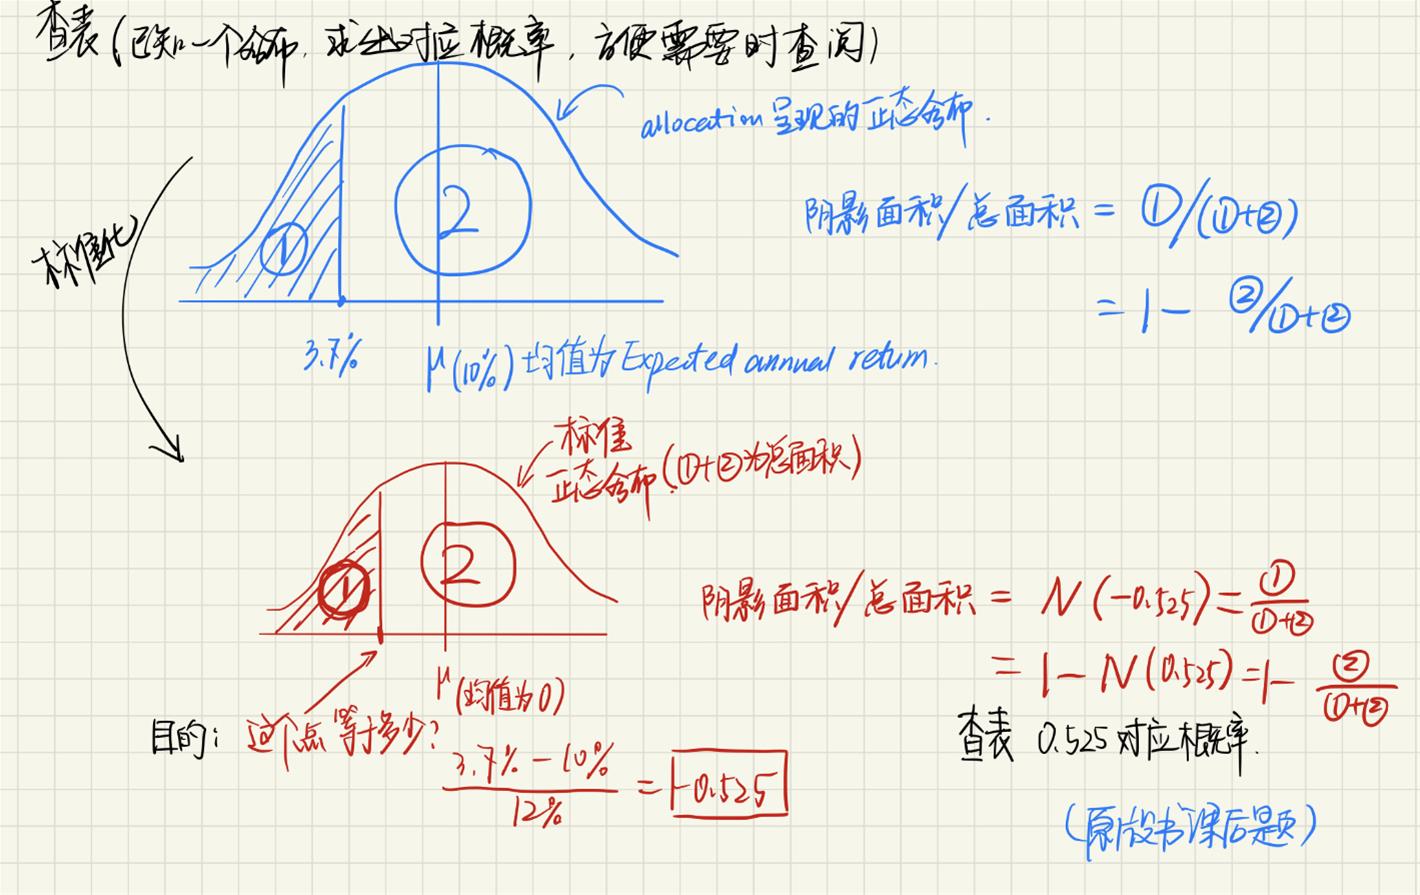 查表(已知一个分布,求出对应概率,方便需要时查阅)
allocation 呈现的正态分布.
阴影面积/总面积 = ①/(①+②)
= 1 - ②/①+②
标准化
①
2
3.7%
μ(10%) 均值为Expected annual return.
标准
正态分布(①+②为总面积)
①
2
阴影面积/总面积 = N(-0.525) = ①/(①+②)
= 1 - N(0.525) = 1 - ②/(①+②)
μ(均值为0)
目的: 这个点等于多少?
(3.7% - 10%)/12% = -0.525
查表 0.525对应概率.
(原版书课后题)